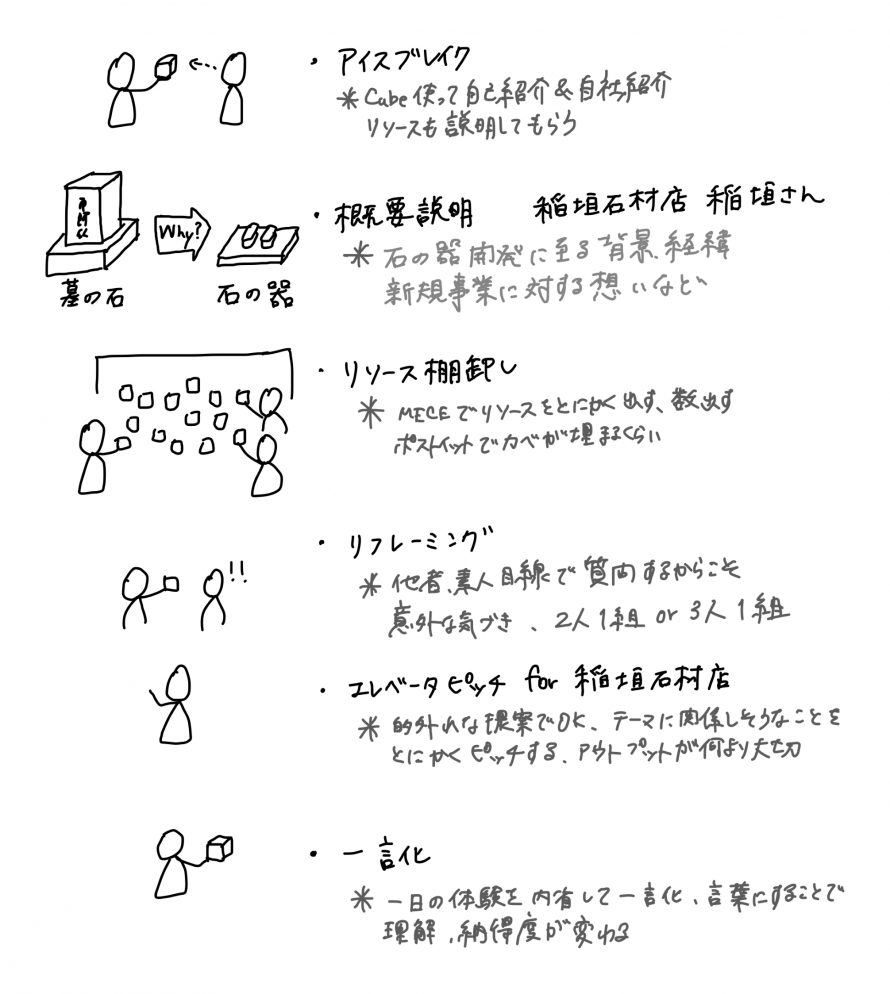 ・アイスブレイク
＊Cube使って自己紹介&自社紹介
リソースも説明してもらう
Why?
墓の石
石の器
・概要説明 稲垣石材店 稲垣さん
＊石の器開発に至る背景、経緯
新規事業に対する想いなど
・リソース棚卸し
＊MECEでリソースをとにかく出す、数出す
ポストイットでカベが埋まるくらい
・リフレーミング
＊他者、素人目線で質問するからこそ
意外な気づき、2人1組 or 3人1組
・エレベータピッチ for 稲垣石材店
＊的外れな提案でOK、テーマに関係しそうなことを
とにかくピッチする、アウトプットが何より大切
・一言化
＊一日の体験を内省して一言化、言葉にすることで
理解、納得度が変わる